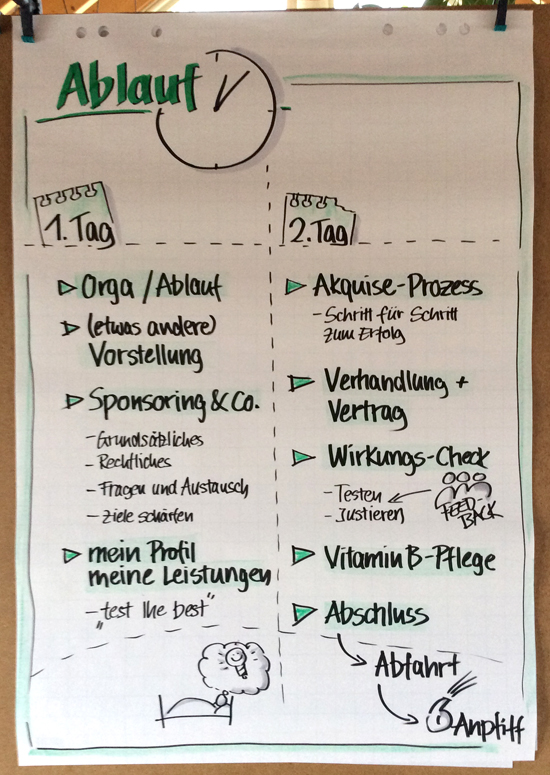 Ablauf
1. Tag
▷ Orga / Ablauf
▷ (etwas andere)
Vorstellung
▷ Sponsoring & Co.
- Grundsätzliches
- Rechtliches
- Fragen und Austausch
- Ziele schärfen
▷ mein Profil
meine Leistungen
- "test the best"
2. Tag
▷ Akquise-Prozess
- Schritt für Schritt
zum Erfolg
▷ Verhandlung +
Vertrag
▷ Wirkungs-Check
- Testen
- Justieren
FEED-
BACK
▷ Vitamin B-Pflege
▷ Abschluss
Abfahrt
Anpfiff